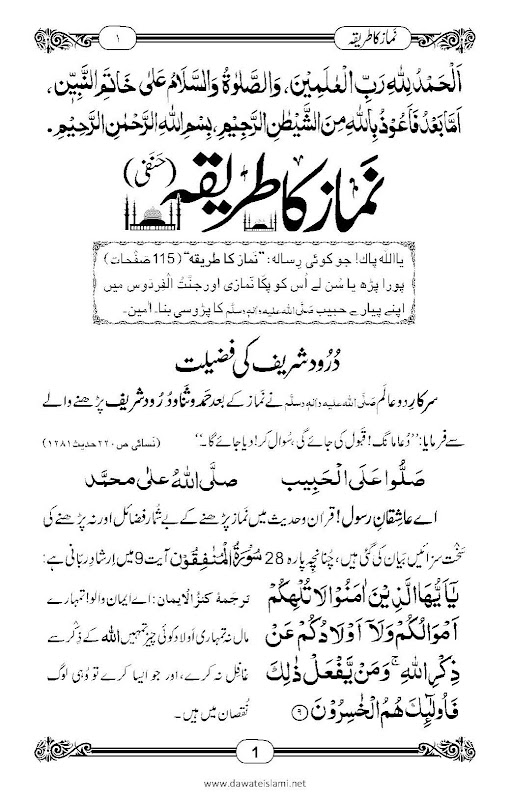 نَماز کا طریقہ ۱
اَلْحَمْدُ لِلّٰہِ رَبِّ الْعٰلَمِیْنَ، وَالصَّلٰوۃُ وَالسَّلَامُ عَلٰی خَاتَمِ النَّبِیّٖن،
اَمَّا بَعْدُ فَاَعُوْذُ بِاللّٰہِ مِنَ الشَّیْطٰنِ الرَّجِیْمِ، بِسْمِ اللّٰہِ الرَّحْمٰنِ الرَّحِیْمِ.
نَماز کا طریقہ (حنفی)
یااللہ پاک! جو کوئی رِسالہ: ”نَماز کا طریقہ“ (115 صَفْحات)
پورا پڑھ یا سُن لے اُس کو پکّا نَمازی اور جنّتُ الْفِردَوس میں
اپنے پیارے حبیب صَلَّی اللہ علیہ واٰلہٖ وسلَّم کا پڑوسی بنا۔ اٰمین۔
دُرُود شریف کی فضیلت
سرکارِ دو عالَم صَلَّی اللہ علیہ واٰلہٖ وسلَّم نے نَماز کے بعد حمد و ثنا و دُرُود شریف پڑھنے والے
سے فرمایا: ”دُعا مانگ! قَبول کی جائے گی، سُوال کر! دیا جائے گا۔“ (نَسائی ص۲۲۰ حدیث ۱۲۸۱)
صَلُّوا عَلَی الْحَبِیب صلَّی اللہُ علٰی محمَّد
اے عاشِقانِ رسول! قراٰن و حدیث میں نَماز پڑھنے کے بے شُمار فضائل اور نہ پڑھنے کی
سَخْت سزائیں بیان کی گئی ہیں، چُنانچِہ پارہ 28 سُوْرَۃُ الْمُنٰفِقُوْن آیت 9 میں اِرشادِ ربّانی ہے:
یٰۤاَیُّهَا الَّذِیْنَ اٰمَنُوْا لَا تُلْهِكُمْ ترجَمۂ کنزُ الایمان: اے ایمان والو! تمہارے
اَمْوَالُكُمْ وَ لَاۤ اَوْلَادُكُمْ عَنْ مال نہ تمہاری اولاد کوئی چیز تمہیں اللہ کے ذِکْر سے
ذِكْرِ اللّٰهِۚ وَ مَنْ یَّفْعَلْ ذٰلِكَ غافِل نہ کرے، اور جو ایسا کرے تو وُہی لوگ
فَاُولٰٓىٕكَ هُمُ الْخٰسِرُوْنَ ۹ نُقصان میں ہیں۔
1
www.dawateislami.net